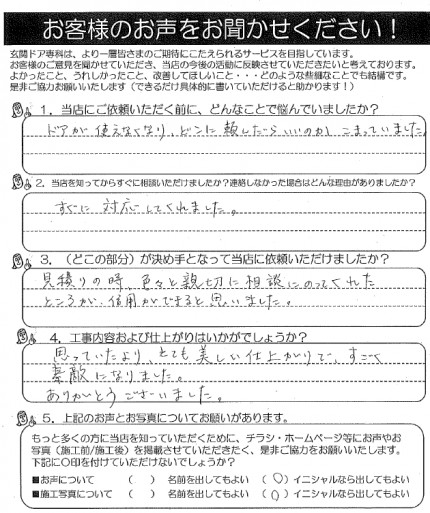 お客様のお声をお聞かせください！
玄関ドア専科は、より一層皆さまのご期待にこたえられるサービスを目指しています。
お客様のご意見を聞かせていただき、当店の今後の活動に反映させていただきたいと考えております。
よかったこと、うれしかったこと、改善してほしいこと・・・どのような些細なことでも結構です。
是非ご協力お願いいたします（できるだけ具体的に書いていただけると助かります！）
1．当店にご依頼いただく前に、どんなことで悩んでいましたか？
ドアが使えなくなり、どこに頼したらいいのか、こまっていました。
2．当店を知ってからすぐに相談いただけましたか？連絡しなかった場合はどんな理由がありましたか？
すぐに対応してくれました。
3．（どこの部分）が決め手となって当店に依頼いただけましたか？
見積りの時、色々と親切に相談にのってくれた
ところが、信用ができると思いました。
4．工事内容および仕上がりはいかがでしょうか？
思っていたより、とても美しい仕上がりで、すごく
素敵になりました。
ありがとうございました。
5．上記のお声とお写真についてお願いがあります。
もっと多くの方に当店を知っていただくために、チラシ・ホームページ等にお声やお
写真（施工前/施工後）を掲載させていただきたく、是非ご協力をお願いいたします。
下記に〇印を付けていただけないでしょうか？
■お声について （ ） 名前を出してもよい （〇）イニシャルなら出してもよい
■施工写真について （ ） 名前を出してもよい （〇）イニシャルなら出してもよい